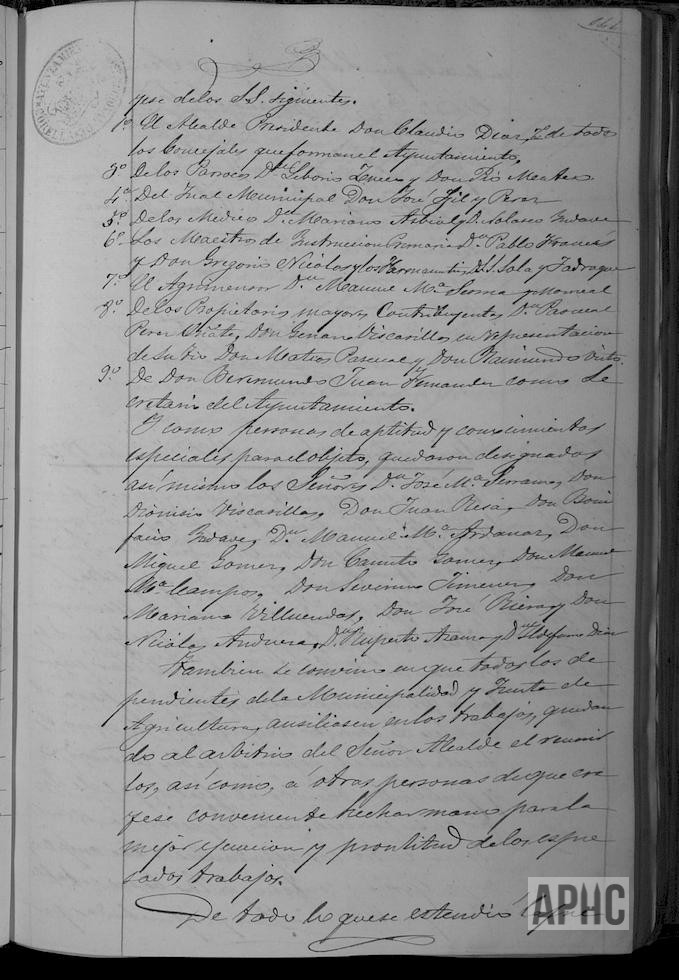 yese de los S.S. siguientes.
1º El Alcalde Presidente Don Claudio Diaz, y de todos
los Concejales que forman el Ayuntamiento,
3º De los Parrocos Dn Liborio y Don Pio Mateo
4º Del Municipal Don José Gil y Perez
5º De los Medicos Dn Mariano y
6º Los Maestros de Instruccion Primaria Dn Pablo Francés
y Don Gregorio Nicolas y los D.S. Sola y Jadraque
7º El Agrimensor Dn Manuel Mª Serma y Monreal
8º De los Propietarios mayores Contribuyentes, Dn Pascual
Perez Oñate, Don Genaro Viscasillas en representacion
de su tio Don Mateo Pascual y Don Raimundo
9º De Don Beremundo Juan Fernandez como Se
cretario del Ayuntamiento.
Y como personas de aptitud y conocimientos
especiales para el objeto, quedaron designados
asi mismo los Señores Dn José Mª Serrano, Don
Dionisio Viscasillas, Don Juan Resa, Don Boni
facio Dn Manuel Mª Ardanaz, Don
Miguel Gomez, Don Canuto Gomez, Don Manuel
Mª Campos, Don Severino Jimenez, Don
Mariano Villuendas, Don José Riera y Don
Nicolas Andueza, Dn Ruperto y Dn Ildefonso Diaz
Tambien se convino en que todos los de
pendientes de la Municipalidad y Junta de
Agricultura, auxiliasen en los trabajos, quedan
do al arbitrio del Señor Alcalde el reunir
los, asi como, á otras personas de que cre
yese conveniente hechar mano para la
mejor ejecucion y prontitud de los espre
sados trabajos.
De todo lo que se estendió
APHC